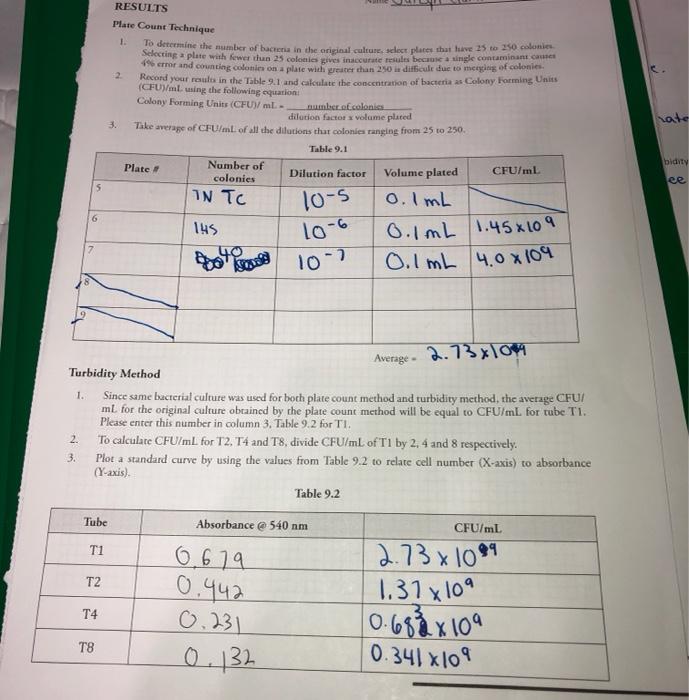 RESULTS
Plate Count Technique
1. To determine the number of bacteria in the original culture, select plates that have 25 to 250 colonies.
Selecting a plate with fewer than 25 colonies gives inaccurate results because a single contaminant causes
4% error and counting colonies on a plate with greater than 250 is difficult due to merging of colonies.
2. Record your results in the Table 9.1 and calculate the concentration of bacteria as Colony Forming Units
(CFU)/mL using the following equation:
Colony Forming Units (CFU)/ mL = number of colonies
dilution factor x volume plated
3. Take average of CFU/mL of all the dilutions that colonies ranging from 25 to 250.
Table 9.1
Plate # Number of colonies Dilution factor Volume plated CFU/mL
5 TNTC 10-5 0.1 mL
6 145 10-6 0.1 mL 1.45 x 109
7 40 10-7 0.1 mL 4.0 x 109
8
9
Average = 2.73 x 109
Turbidity Method
1. Since same bacterial culture was used for both plate count method and turbidity method, the average CFU/
mL for the original culture obtained by the plate count method will be equal to CFU/mL for tube T1.
Please enter this number in column 3, Table 9.2 for T1.
2. To calculate CFU/mL for T2, T4 and T8, divide CFU/mL of T1 by 2, 4 and 8 respectively.
3. Plot a standard curve by using the values from Table 9.2 to relate cell number (X-axis) to absorbance
(Y-axis).
Table 9.2
Tube Absorbance @ 540 nm CFU/mL
T1 0.679 2.73 x 109
T2 0.442 1.37 x 109
T4 0.231 0.683 x 109
T8 0.132 0.341 x 109
bidity
ee